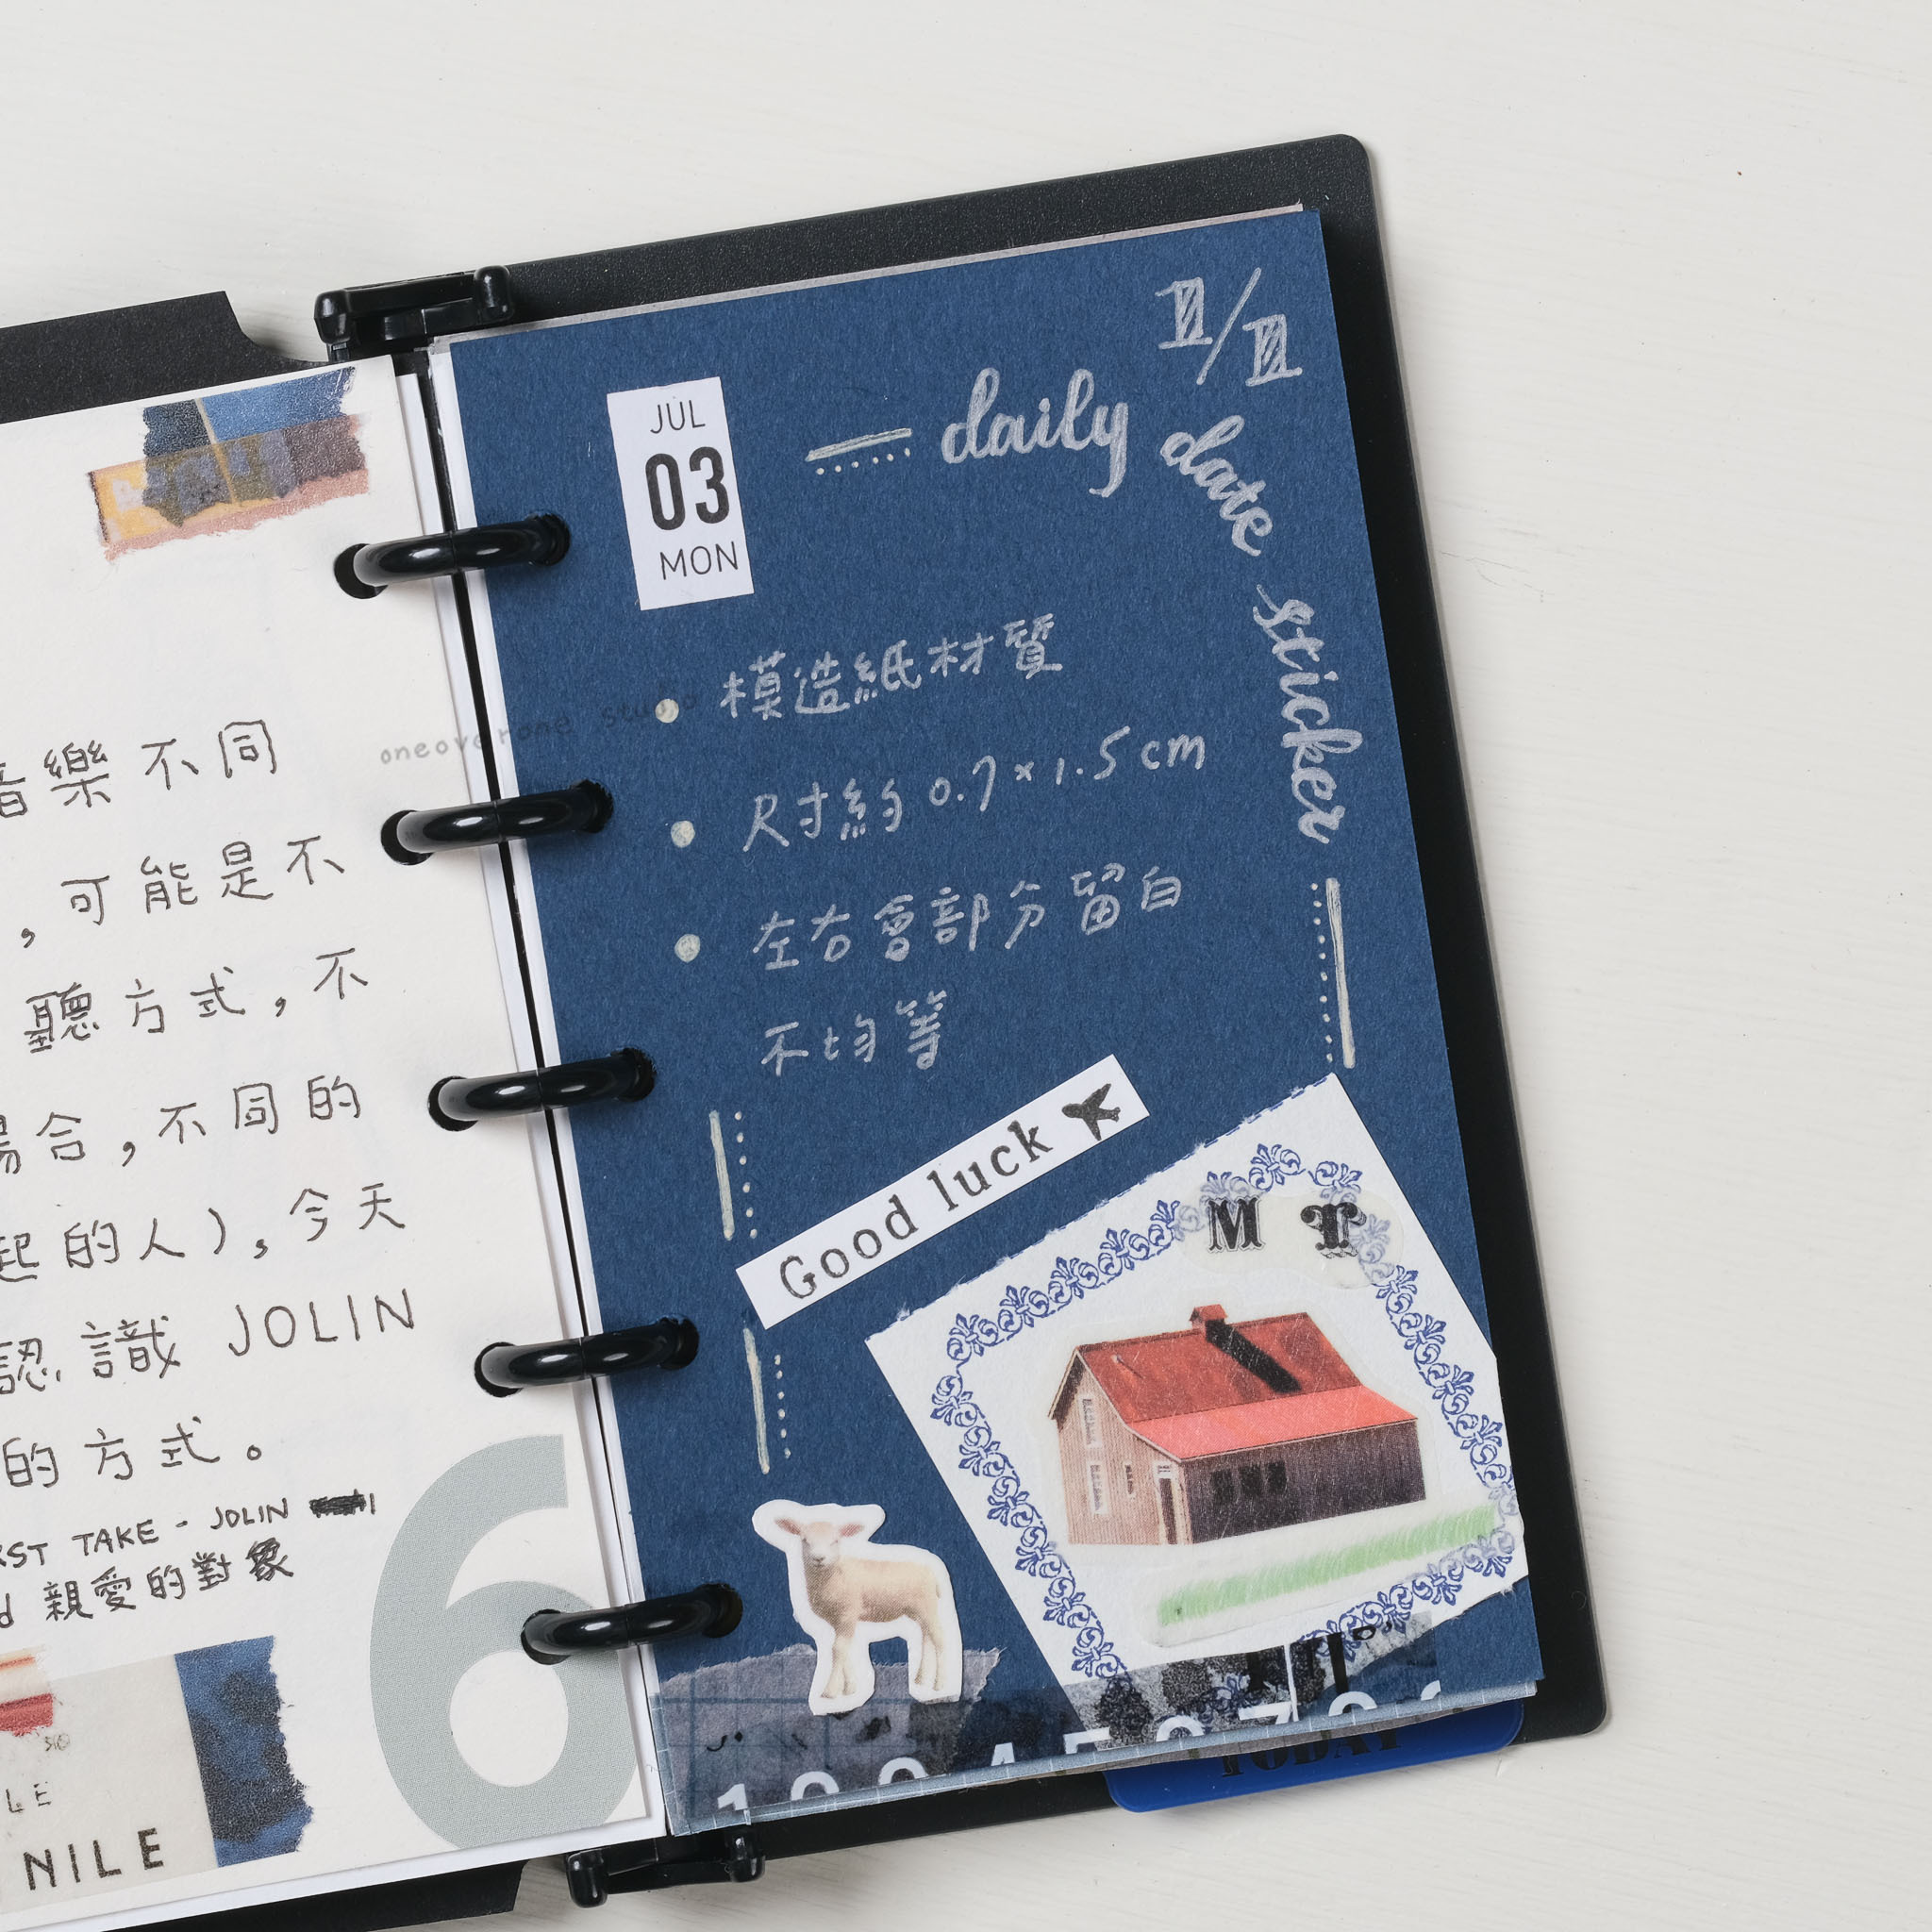 音樂不同
，可能是不
聽方式，不
場合，不同的
起的人），今天
認識 JOLIN
的方式。
TAKE - JOLIN
親愛的對象
6
NILE
oneoverone studio
II/III
daily date sticker
JUL
03
MON
模造紙材質
尺寸約 0.7×1.5cm
左右會部分留白
不均等
Good luck
Mr
TODAY